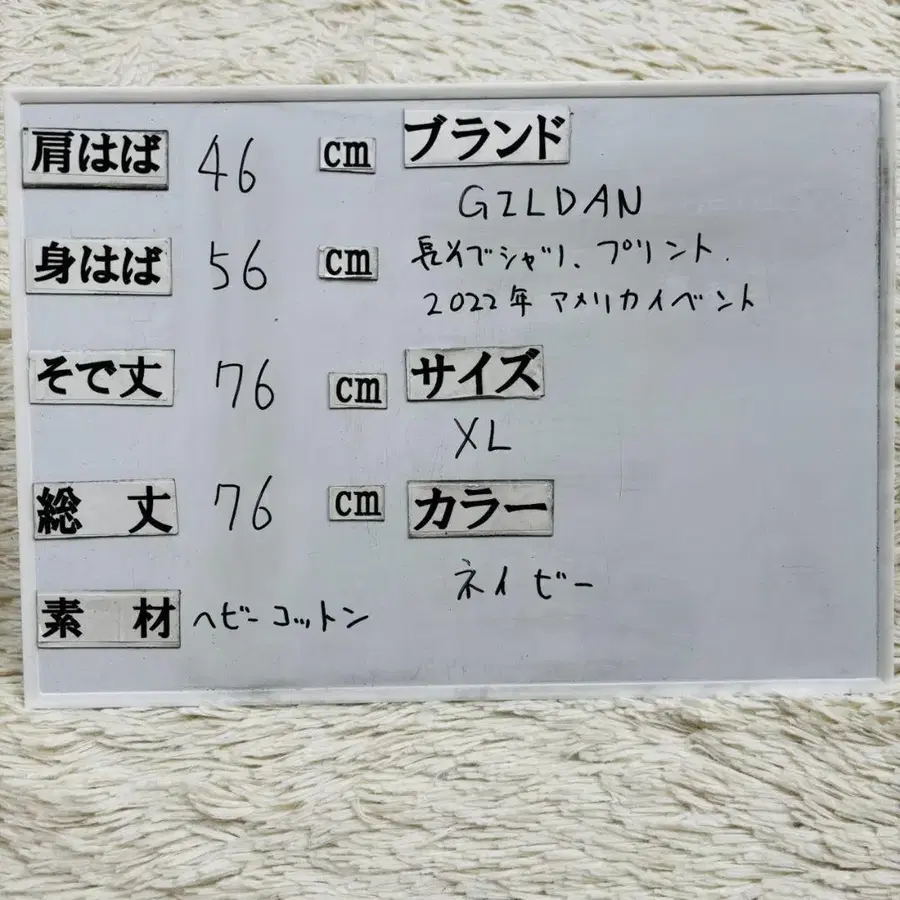 肩はば 46 cm
身はば 56 cm
そで丈 76 cm
総 丈 76 cm
素 材 ヘビーコットン
ブランド
GILDAN
長そでシャツ、プリント.
2022年 アメリカイベント
サイズ
XL
カラー
ネイビー